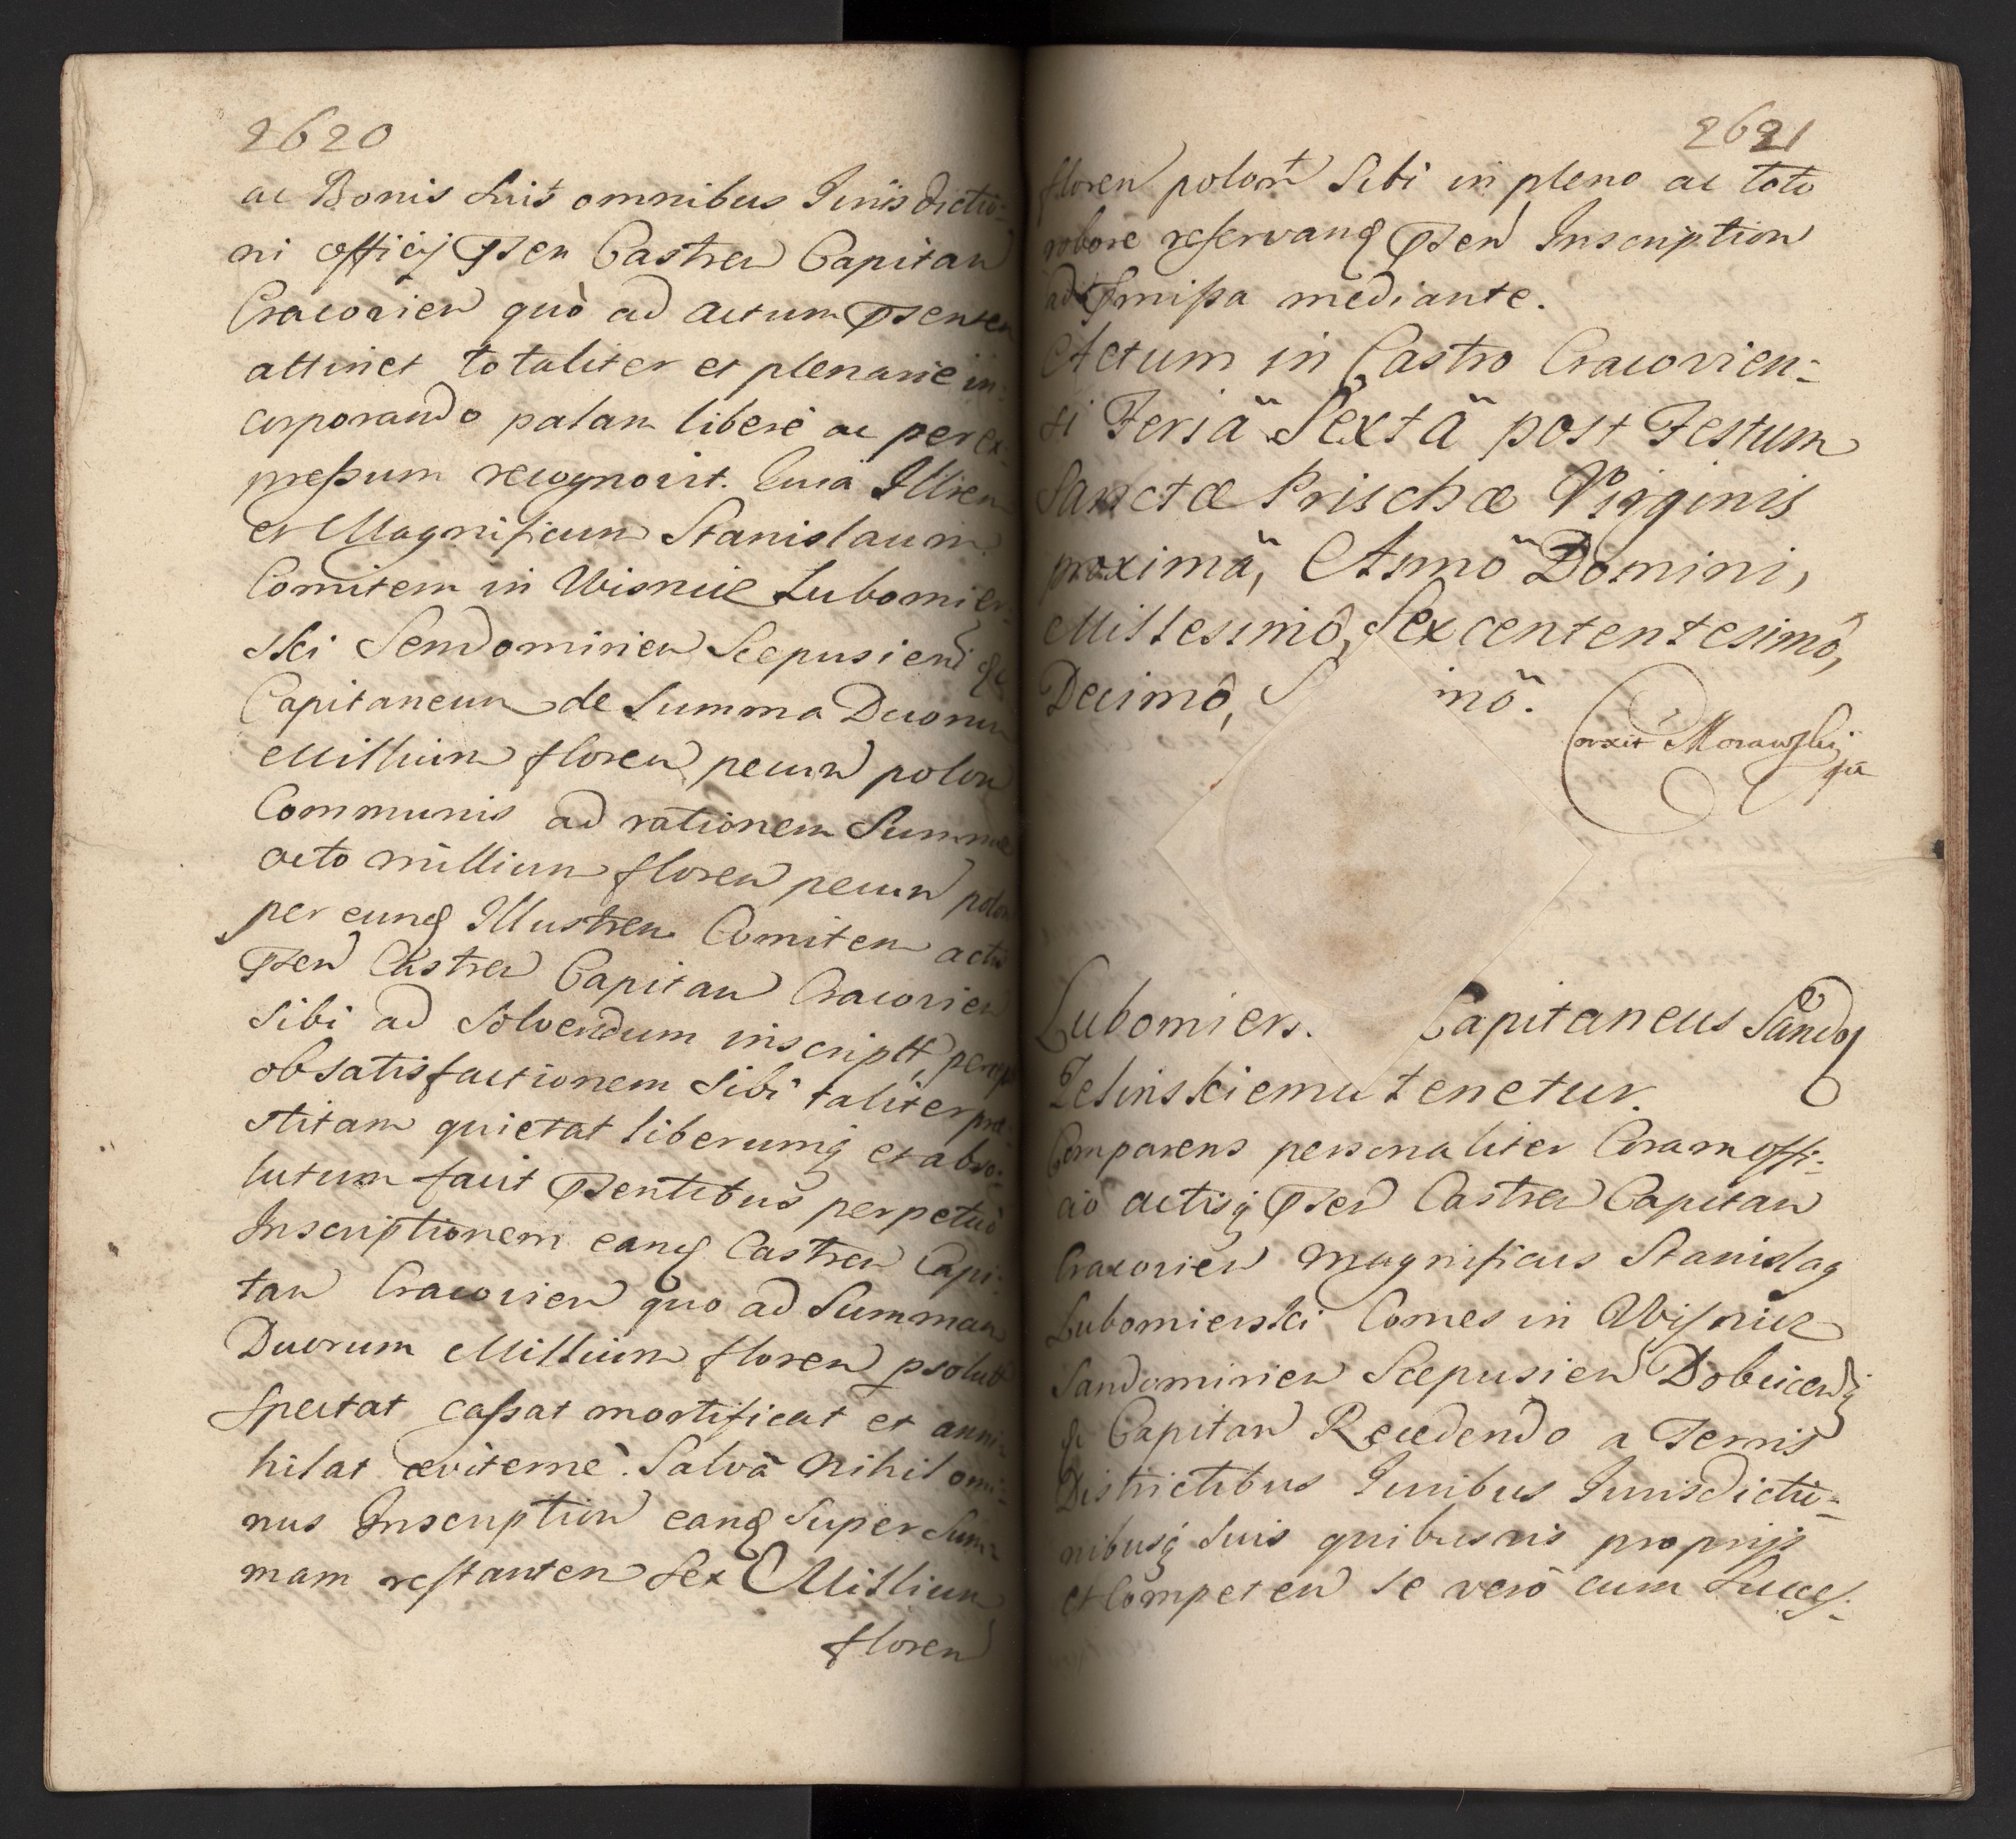 2620
ac Bonis Suis omnibus Jurisdictio-
ni officij pñsen Castren Capitan
Cracovien quò ad actum pñsentem
attinet totaliter et plenarie in-
corporando palam liberè ac per ex-
pressum recognovit. Quia Illrem
et Magnificum Stanislaum
Comitem in Wisnicz Lubomier-
ski Sendomirien Scepusien &c
Capitaneum de Summa Duorum
Millium floren pecun polon
Communis ad rationem Summæ
octo millium floren pecun polon
per eunq Illustrem Comitem actis
pñsen Castren Capitan Cracovien
Sibi ad Solvendum inscriptt, percept
ob satisfactionem Sibi taliter præ-
stitam quietat liberumq et abso-
lutum facit pñsentibus perpetuò
Inscriptionem eanq Castren Capi-
tan Cracovien quo ad Summam
Duorum Millium floren psolutt
Spectat cassat mortificat et anni-
hilat æviternè. Salvâ nihil omi-
nus Inscription eanq Super Sum-
mam restantem Sex Millium
floren
2621
floren polon Sibi in pleno ac toto
robore reservanq pñsen Inscription
ad pmissa mediante.
Actum in Castro Cracovien-
si Feriâ Sextâ post Festum
Sanctæ Prischæ Virginis
proximâ, Annô Domini,
Millesimô, Sexcententesimô,
Decimô, S mô.
Corrxit Morawskij
Lubomiers. Capitaneus Sandoq
Zelinskiemu tenetur.
Comparens personaliter Coram offi-
cio actisq pñsen Castren Capitan
Cracovien Magnificus Stanislaq
Lubomierski Comes in Wisnicz
Sandomirien Scepusien Dobcicenq
&c Capitan Recedendo a Terris
Districtibus Juribus Jurisdictio-
nibusq Suis quibusvis proprijs
et Competen se verò cum Succes-